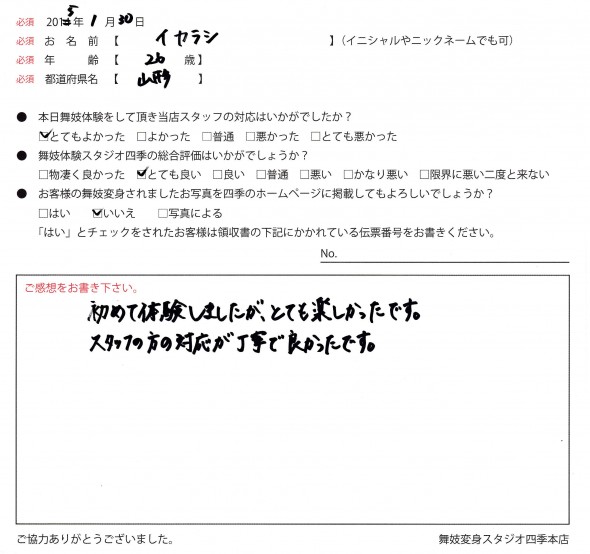 必須 2015年 1月30日
必須 お名前【 イガラシ 】(イニシャルやニックネームでも可)
必須 年齢【 26 歳】
必須 都道府県名【 山形 】
● 本日舞妓体験をして頂き当店スタッフの対応はいかがでしたか？
☑とてもよかった □よかった □普通 □悪かった □とても悪かった
● 舞妓体験スタジオ四季の総合評価はいかがでしょうか？
□物凄く良かった ☑とても良い □良い □普通 □悪い □かなり悪い □限界に悪い二度と来ない
● お客様の舞妓変身されましたお写真を四季のホームページに掲載してもよろしいでしょうか？
□はい ☑いいえ □写真による
「はい」とチェックをされたお客様は領収書の下記にかかれている伝票番号をお書きください。
No.
ご感想をお書き下さい。
初めて体験しましたが、とても楽しかったです。
スタッフの方の対応が丁寧で良かったです。
ご協力ありがとうございました。 舞妓変身スタジオ四季本店